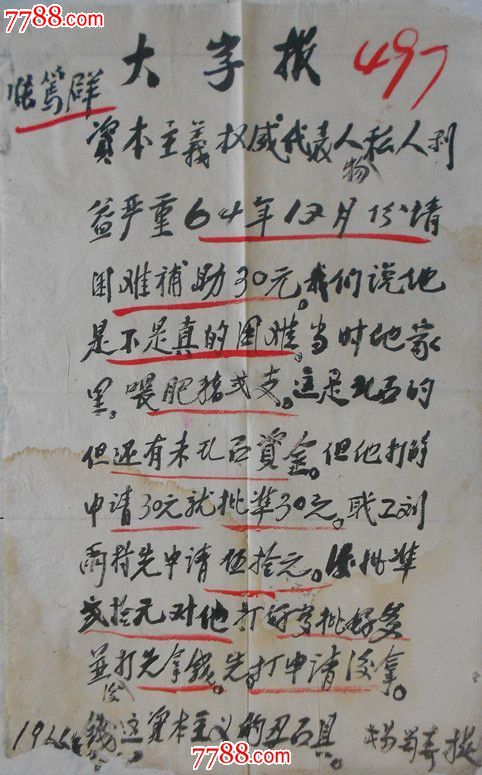 7788.com
7788.com
大字报
497
张笃群
資本主義权威代表人物私人利
益严重64年12月份請
困难補助30元。我们说他
是不是真的困难。当时他家
里。喂肥猪弍支。这是孔石的
但还有未孔石資金。但他打的
申请30元就批準30元。或工刘
雨待先申请伍拾元。後批準
弍拾元对他打的亨批好多
並打先拿錢。先打申请後拿
1966年錢这資本主义的丑石具。
7788.com
7788.com